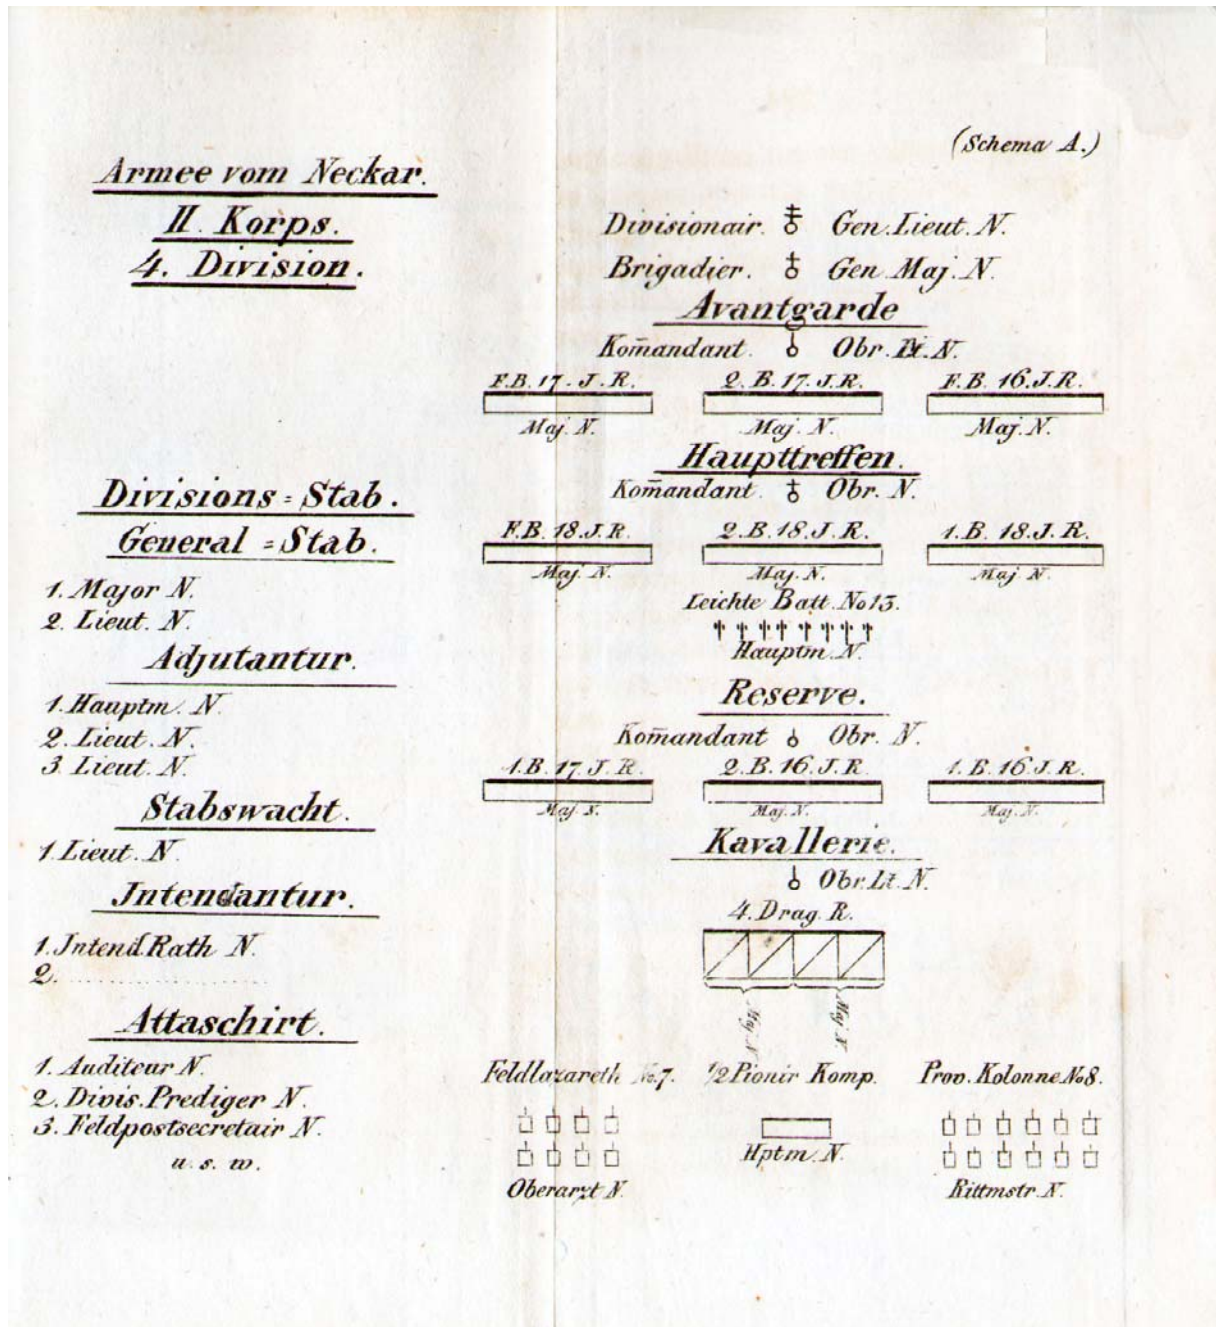 (Schema A.)
Armee vom Neckar.
II. Korps.
4. Division.
Divisions=Stab.
General=Stab.
1. Major N.
2. Lieut. N.
Adjutantur.
1. Hauptm. N.
2. Lieut. N.
3. Lieut. N.
Stabswacht.
1. Lieut. N.
Intendantur.
1. Intend. Rath N.
2. ....................
Attaschirt.
1. Auditeur N.
2. Divis. Prediger N.
3. Feldpostsecretair N.
u. s. w.
Divisionair. Gen. Lieut. N.
Brigadier. Gen. Maj. N.
Avantgarde
Kom̄andant. Obr. Lt. N.
F.B. 17. J. R. 2. B. 17. J. R. F. B. 16. J. R.
Maj. N. Maj. N. Maj. N.
Haupttreffen.
Kom̄andant. Obr. N.
F.B. 18. J. R. 2. B. 18. J. R. 1. B. 18. J. R.
Maj. N. Maj. N. Maj. N.
Leichte Batt. No 13.
Hauptm. N.
Reserve.
Kom̄andant Obr. N.
1. B. 17. J. R. 2. B. 16. J. R. 1. B. 16. J. R.
Maj. N. Maj. N. Maj. N.
Kavallerie.
Obr. Lt. N.
4. Drag. R.
Maj. N. Maj. N.
Feldlazareth No. 7. 1/2 Pionir Komp. Prov. Kolonne No 8.
Hptm. N.
Oberarzt N. Rittmstr. N.